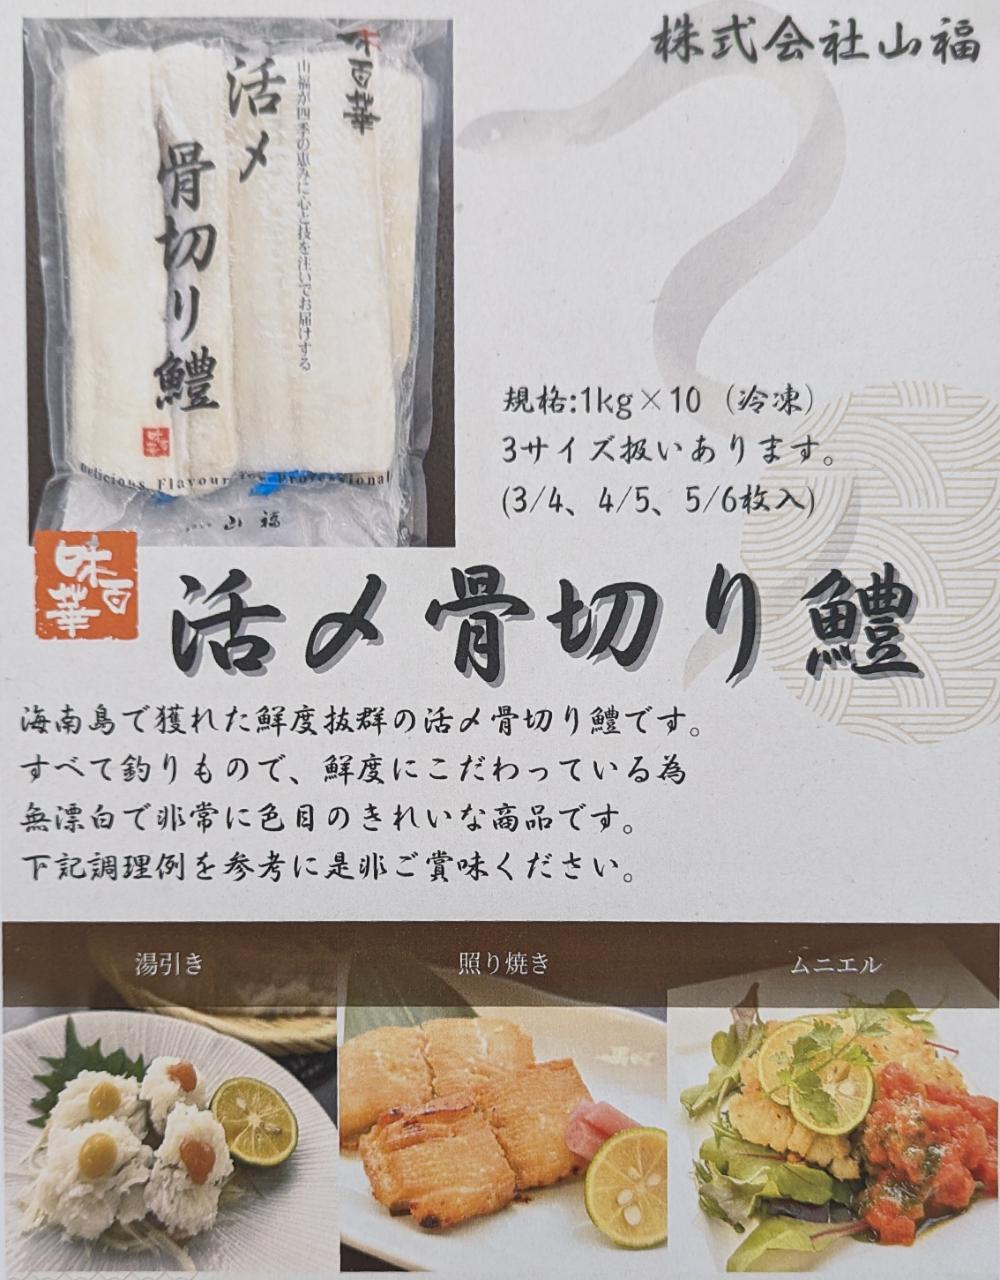 株式会社山福
味百華
活〆
骨切り鱧
山福が四季の恵みに心と技を注いでお届けする
味百華
Delicious Flavour for Professional
山福
規格:1kg×10（冷凍）
3サイズ扱いあります。
(3/4、4/5、5/6枚入)
味百華
活〆骨切り鱧
海南島で獲れた鮮度抜群の活〆骨切り鱧です。
すべて釣りもので、鮮度にこだわっている為
無漂白で非常に色目のきれいな商品です。
下記調理例を参考に是非ご賞味ください。
湯引き
照り焼き
ムニエル